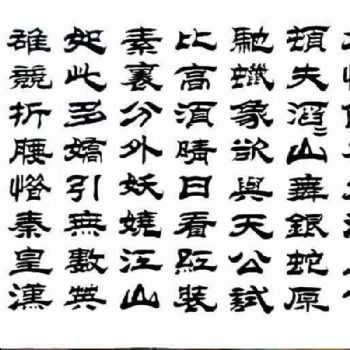 頓失滔〻山舞銀蛇原
馳蠟象欲與天公試
比高湏晴日看紅裝
素裹分外妖嬈江山
如此多嬌引無數英
雄競折腰惜秦皇漢